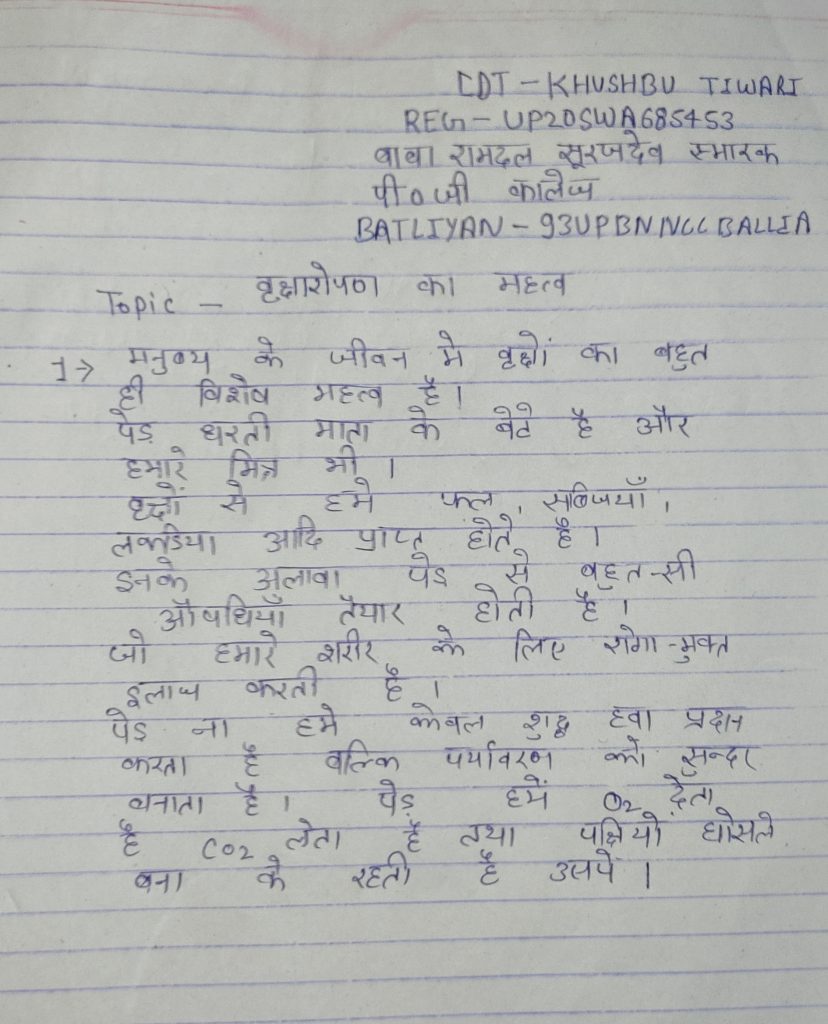 CDT - KHUSHBU TIWARI
REG - UP20SWA685453
बाबा रामदल सूरजदेव स्मारक
पी० जी कालेज
BATLIYAN - 93UPBN NCC BALLIA
Topic - वृक्षारोपण का महत्व
1→ मनुष्य के जीवन मे वृक्षों का बहुत
ही विशेष महत्व है।
पेड धरती माता के बेटे है और
हमारे मित्र भी ।
वृक्षों से हमे फल, सब्जियाँ,
लकडिया आदि प्राप्त होते है।
इनके अलावा पेड से बहुत-सी
औषधियाँ तैयार होती है।
जो हमारे शरीर के लिए रोगा-मुक्त
इलाज करती है।
पेड ना हमे केवल शुद्ध हवा प्रदान
करता है बल्कि पर्यावरण को सुन्दर
बनाता है। पेड़ हमें O2 देता
है CO2 लेता है तथा पक्षियो घोसले
बना के रहती है उसपे।